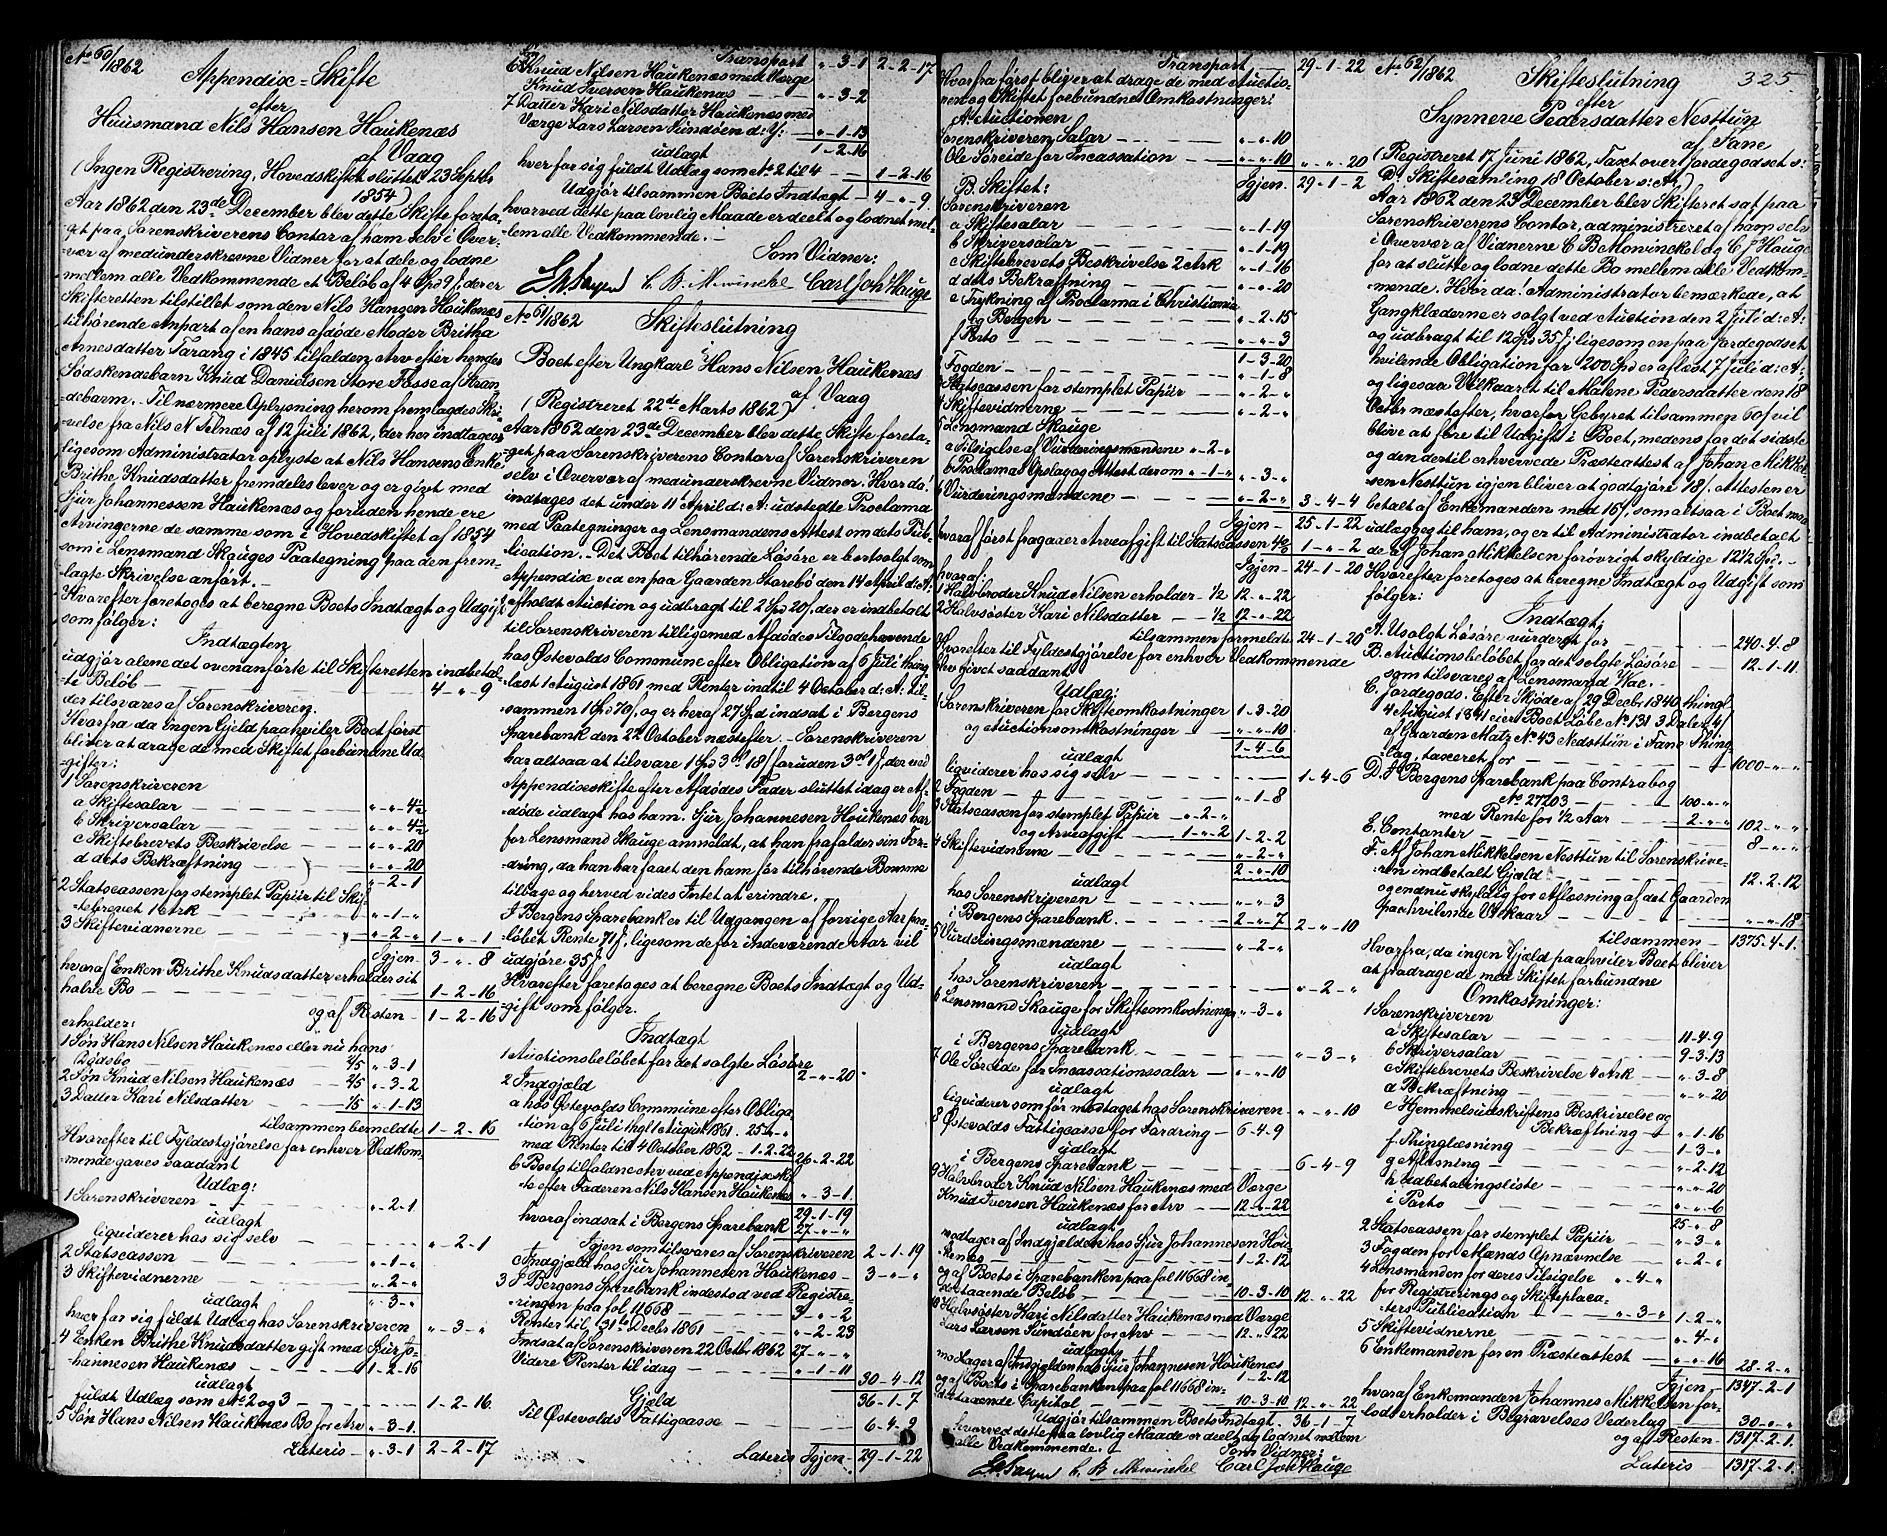 No 60/1862
Appendix-Skifte
efter
Huusmand Nils Hansen Haukenæs
af Vaag
(Ingen Registrering, Hovedskiftet sluttet 23 Septbr
1854)
Aar 1862 den 23de December blev dette Skifte foreta-
get paa Sorenskriverens Contor af ham selv i Over-
vær af medunderskrevne Vidner for at dele og lodne
mellem alle Vedkommende et Beløb af 4 Spd 9 ß, der er
Skifteretten tilstillet som den Nils Hansen Haukenæs
tilhørende Anpart af en hans afdøde Moder Britha
Annesdatter Tarang i 1845 tilfalden Arv efter hendes
Sødskendebarn Knud Danielsen Store Fosse af Stran-
debarm. Til nærmere Oplysning herom fremlagdes Skri-
velse fra Nils N Tilnæs af 12 Juli 1862, der her indtages
ligesom Administrator oplyste at Nils Hansens Enke
Brithe Knudsdatter fremdeles lever og er givet med
Sjur Johannessen Haukenæs og foruden hende ere
Arvingerne de samme som i Hovedskiftet af 1854
som i Lensmand Skauges Paategning paa den frem-
lagte Skrivelse anført. -
Hvorefter foretoges at beregne Boets Indtægt og Udgift
som følger:
Indtægten
udgjør alene det ovenanførte til Skifteretten indbetal-
te Beløb - 4 - " - 9
der tilsvares af Sorenskriveren.
Hvorfra da ingen Gjeld paahviler Boet først
bliver at drage de med Skiftet forbundne Ud-
gifter:
1 Sorenskriveren
a Skiftesalar - " - " - 4½
b Skriversalar - " - " - 4½
c Skiftebrevets Beskrivelse - " - " - 20
d dets Bekræftning - " - " - 20
" - 2 - 1
2 Statscassen for stemplet Papiir til Skif-
tebrevet 1 Ark - " - 1 - "
3 Skiftevidnerne - " - 2 - " 1 - " - 1
Igjen - 3 - " - 8
hvoraf Enken Brithe Knudsdatter erholder sit
halve Bo - 1 - 2 - 16
og af Resten - 1 - 2 - 16
erholder:
1 Søn Hans Nilsen Haukenæs eller nu hans
Dødsbo - 2/5 " - 3 - 1
2 Søn Knud Nilsen Haukenæs - 2/5 " - 3 - 2
3 Datter Kari Nilsdatter - 1/5 " - 1 - 13
tilsammen bemeldte 1 - 2 - 16
Hvorefter til Fyldestgjørelse for enhver Vedkom-
mende gaves saadant
Udlæg:
1 Sorenskriveren - " - 2 - 1
udlagt
liqviderer hos sig selv - " - 2 - 1
2 Statscassen - " - 1 - "
3 Skiftevidnerne - " - 2 - "
udlagt " - 3 - "
hver for sig fuldt Udlæg hos Sorenskriveren " - 3 - "
4 Enken Brithe Knudsdatter gift med Sjur Jo-
hannesen Haukenæs - 1 - 2 - 16
udlagt
fuldt Udlæg som No 2 og 3 - 1 - 2 - 16
5 Søn Hans Nilsen Haukenæs Bo for Arv " - 3 - 1
Lateris " - 3 - 1 2 - 2 - 17
Transport " - 3 - 1 2 - 2 - 17
6 Søn Knud Nilsen Haukenæs med Værge
Knud Iversen Haukenæs - " - 3 - 2
7 Datter Kari Nilsdatter Haukenæs med
Værge Lars Larsen Sundøen d: Y: - " - 1 - 13
udlagt 1 - 2 - 16
hver for sig fuldt Udlæg som No 2 til 4 - 1 - 2 - 16
Udgjør tilsammen Boets Indtægt - 4 - " - 9
hvorved dette paa lovlig Maade er deelt og lodnet mel-
lem alle Vedkommende. -
Som Vidner:
C. B. Mowinckel Carl Joh Hauge
No 61/1862
Skifteslutning
i
Boet efter Ungkarl Hans Nilsen Haukenæs
af Vaag
(Registreret 22de Marts 1862)
Aar 1862 den 23de December blev dette Skifte foreta-
get paa Sorenskriverens Contor af Sorenskriveren
selv i Overvær af medunderskrevne Vidner. Hvor da!
indtages det under 11 April d: A: udstedte Proclama
med Paategninger og Lensmandens Attest om dets Pub-
lication. Det Boet tilhørende Løsøre er bortsolgt som
Appendix ved en paa Gaarden Storebø den 14 April d: A:
afholdt Auction og udbragt til 2 Spd 20 ß, der er indbetalt
til Sorenskriveren tilligemed Afdødes Tilgodehavende
hos Østevolds Commune efter Obligation af 6 Juli thing-
læst 1 August 1861 med Renter indtil 4 October d: A: til-
sammen 1 Spd 70 ß, og er heraf 27 Spd indsat i Bergens
Sparebank den 22 October næstefter. - Sorenskriveren
har altsaa at tilsvare 1 Spd 3 ort 18 ß foruden 3 ort 1 ß, der ved
Appendixskifte efter Afdødes Fader sluttet idag er Af-
døde udlagt hos ham. Sjur Johannesen Haukenæs har
for Lensmand Skauge anmeldt, at han frafalder sin For-
dring, da han har faaet den ham før tilhørende Bomme
tilbage og herved vides Intet at erindre.
I Bergens Sparebank er til Udgangen af forrige Aar paa-
løbet Rente 71 ß, ligesom de for indeværende Aar vil
udgjøre 35 ß
Hvorefter foretoges at beregne Boets Indtægt og Ud-
gift som følger.
Indtægt
1 Auctionsbeløbet for det solgte Løsøre 2 - " - 20
2 Indgjæld
a hos Østevolds Commune efter Obliga-
tion af 6 Juli thgl 1 August 1861. 25 - " - "
med Renter til 4 October 1862 - 1 - 2 - 22 26 - 2 - 22
b Boets tilfaldne Arv ved Appendixskif-
te efter Faderen Nils Hansen Haukenæs " - 3 - 1.
29 - 1 - 19
hvoraf indsat i Bergens Sparebank 27 - " - "
Igjen som tilsvares af Sorenskriveren 2 - 1 - 19
c Indgjæld hos Sjur Johannesen Haukenæs - 3 - " - "
3 I Bergens Sparebank indestod ved Registre-
ringen paa fol. 11668 - 3 - " - 2
Renter til 31te Decbr 1861 - " - 2 - 23
Indsat af Sorenskriveren 22 Octbr 1862 27 - " - "
Videre Renter til idag - " - 1 - 11
30 - 4 - 12
Gjæld 36 - 1 - 7
Til Østevolds Fattigcasse - 6 - 4 - 9
Lateris Igjen - 29 - 1 - 22
Transport - 29 - 1 - 22
Hvorfra først bliver at drage de med Auctio-
nen og Skiftet forbundne Omkostninger:
A. Auctionen
Sorenskriveren Salar - " - " - 10
Ole Søreide for Incassation - " - " - 10 " - " - 20
Igjen - 29 - 1 - 2
B. Skiftet:
Sorenskriveren
a Skiftesalar - " - 1 - 19
b Skriversalar - " - 1 - 19
c Skiftebrevets Beskrivelse 2 Ark " - 1 - 16
d dets Bekræftning - " - " - 20
e Trykning af Proclama i Christiania
og Bergen - " - 2 - 15
f Porto - " - " - 3
1 - 3 - 20
2 Fogden - " - 1 - 8
3 Statscassen for stemplet Papiir - " - 2 - "
4 Skiftevidnerne - " - 2 - "
5 Lensmand Skauge
a Tilsigelse af Vurderingsmændene " - 2 - "
b Proclamas Opslag og Attest derom " - 1 - " " - 3 - "
6 Vurderingsmændene - " - 2 - " 3 - 4 - 4
Igjen - 25 - 1 - 22
hvoraf først fragaaer Arveafgift til Statscassen 4% 1 - " - 2
Igjen - 24 - 1 - 20
hvoraf:
1 Halvbroder Knud Nilsen erholder - 1/2 12 - " - 22
2 Halvsøster Kari Nilsdatter - 1/2 12 - " - 22
tilsammen formeldte 24 - 1 - 20
Hvorefter til Fyldestgjørelse for enhver Vedkommende
blev givet saadant
Udlæg:
1 Sorenskriveren for Skifteomkostninger 1 - 3 - 20
og Auctionsomkostninger - " - " - 10
udlagt 1 - 4 - 6
liqviderer hos sig selv - 1 - 4 - 6
2 Fogden - " - 1 - 8
3 Statscassen for stemplet Papiir " - 2 - "
og Arveafgift - 1 - " - 2 1 - 2 - 2
4 Skiftevidnerne - " - 2 - "
2 - " - 10
udlagt
hos Sorenskriveren " - " - 3
i Bergens Sparebank - 2 - " - 7 2 - " - 10
5 Vurderingsmændene - " - 2 - "
udlagt
hos Sorenskriveren - " - 2 - "
6 Lensmand Skauge for Skifteomkostning " - 3 - "
udlagt
i Bergens Sparebank - " - 3 - "
7 Ole Søreide for Incassationssalar - " - " - 10
udlagt
liqviderer som før modtaget hos Sorenskriveren - " - " - 10
8 Østevolds Fattigcasse for Fordring - 6 - 4 - 9
udlagt
i Bergens Sparebank - 6 - 4 - 9
9 Halvbroder Knud Nilsen Haukenæs med Værge
Knud Iversen Haukenæs for Arv - 12 - " - 22
udlagt
modtager af Indgjælden hos Sjur Johannesen Hou-
kenæs - 1 - 2 - 12
og af Boets i Sparebanken paa fol 11668 in-
destaaende Beløb - 10 - 3 - 10 12 - " - 22
10 Halvsøster Kari Nilsdatter Haukenæs med Værge
Lars Larsen Sundøen for Arv - 12 - " - 22
udlagt
modtager af Indgjælden hos Sjur Johannesen Houkenæs
1 - 2 - 12
og af Boets i Sparebanken paa fol 11668 in-
destaaende Capitol - 10 - 3 - 10 12 - " - 22
Udgjør tilsammen Boets Indtægt. 36 - 1 - 7
hvorved dette paa lovlig Maade er deelt og lodnet mellem
alle Vedkommende.
Som Vidner:
C. B. Mowinckel Carl Joh Hauge
325.
No 62/1862
Skifteslutning
efter
Synneve Pedersdatter Nesttun
af Fane
(Registreret 17 Juni 1862, Taxt over Jordegodset s:
D: Skiftesamling 18 October s: A:)
Aar 1862 den 23 December blev Skifteret sat paa
Sorenskriverens Contor, administreret af ham selv
i Overvær af Vidnerne C B Mowinckel og C J Hauge
for at slutte og lodne dette Bo mellem alle Vedkom-
mende. Hvor da! Administrator bemærkede, at
Gangklæderne er solgt ved Auction den 2 Juli d: A:
og udbragt til 12 Spd 35 ß, ligesom en paa Jordegodset
hvilende Obligation for 200 Spd er aflæst 7 Juli d: A:
og ligesaa Vilkaaret til Malene Pedersdatter den 18
Octbr næstefter, hvorfor Gebyret tilsammen 60 ß vil
blive at føre til Udgift i Boet, medens for det sidste
og den dertil erhvervede Præsteattest af Johan Mikkel-
sen Nesttun igjen bliver at godtgjøre 18 ß. Attesten er
betalt af Enkemanden med 16 ß, som altsaa i Boet maa
udlægges til ham, og er til Administrator indbetalt
de af Johan Mikkelsen forøvrigt skyldige 12½ Spd. -
Hvorefter foretoges at beregne Indtægt og Udgift som
følger:
Indtægt;
A. Usolgt Løsøre vurderet for - 240 - 4 - 8
B. Auctionsbeløbet for det solgte Løsøre 12 - 1 - 11
som tilsvares af Lensmand Wae.
C. Jordegods. Efter Skjøde af 29 Decbr 1840 thingl
4 August 1841 eier Boet Løbe No 131 3 Daler 4 ß
af Gaarden Matr No 43 Nedsttun i Fane Thing-
lag, taxeret for - 1000 - " - "
D. I Bergens Sparebank paa Contrabog
No 27203 - 100 - " - "
med Rente for 1/2 Aar - 2 - " - " 102 - " - "
E. Contanter - 8 - " - "
F. Af Johan Mikkelsen Nesttun til Sorenskrive-
ren indbetalt Gjæld - 12 - 2 - 12
og endnu skyldig for Aflæsning af det Gaarden
paahvilende Vilkaar - " - " - 18
tilsammen - 1375 - 4 - 1.
Hvorfra, da ingen Gjæld paahviler Boet bliver
at fradrage de med Skiftet forbundne
Omkostninger:
1 Sorenskriveren
a Skiftesalar - 11 - 4 - 9
b Skriversalar - 9 - 3 - 13
c Skiftebrevets Beskrivelse 4 Ark - " - 3 - 8
d Bekræftning - " - " - 20
e Hjemmelsudskriftens Beskrivelse og
Bekræftning - " - 1 - 16
f Thinglesning - 1 - 3 - "
g Aflæsning - " - 2 - 12
h Udbetalingsliste - " - " - 20
i Porto - " - " - 6
25 - " - 8
2 Statscassen for stemplet Papiir - " - 3 - "
3 Fogden for Mænds Opnævnelse - " - 2 - "
4 Lensmanden for deres Tilsigelse " - 4 - "
for Registrerings og Skifteplaca-
ters Publication - " - 3 - " 1 - 2 - "
5 Skiftevidnerne - " - 4 - "
6 Enkemanden for en Præsteattest - " - " - 16 28 - 2 - "
Igjen - 1347 - 2 - 1
hvoraf Enkemanden Johannes Mikkelsen for-
lods erholder i Begravelses Vederlag - 30 - " - "
og af Resten - 1317 - 2 - 1.
Lateris - 1317 - 2 - 1.